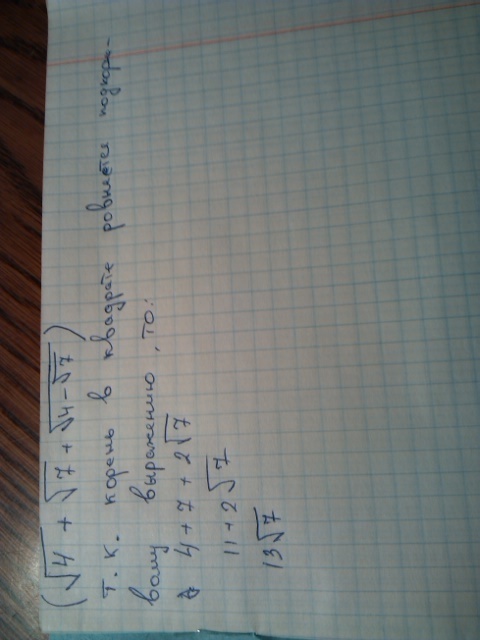 (√4 + √7 + √4-√7)
т. к. корень в квадрате ровняется подкоре-
вому выражению, то:
4 + 7 + 2√7
11 + 2√7
13√7